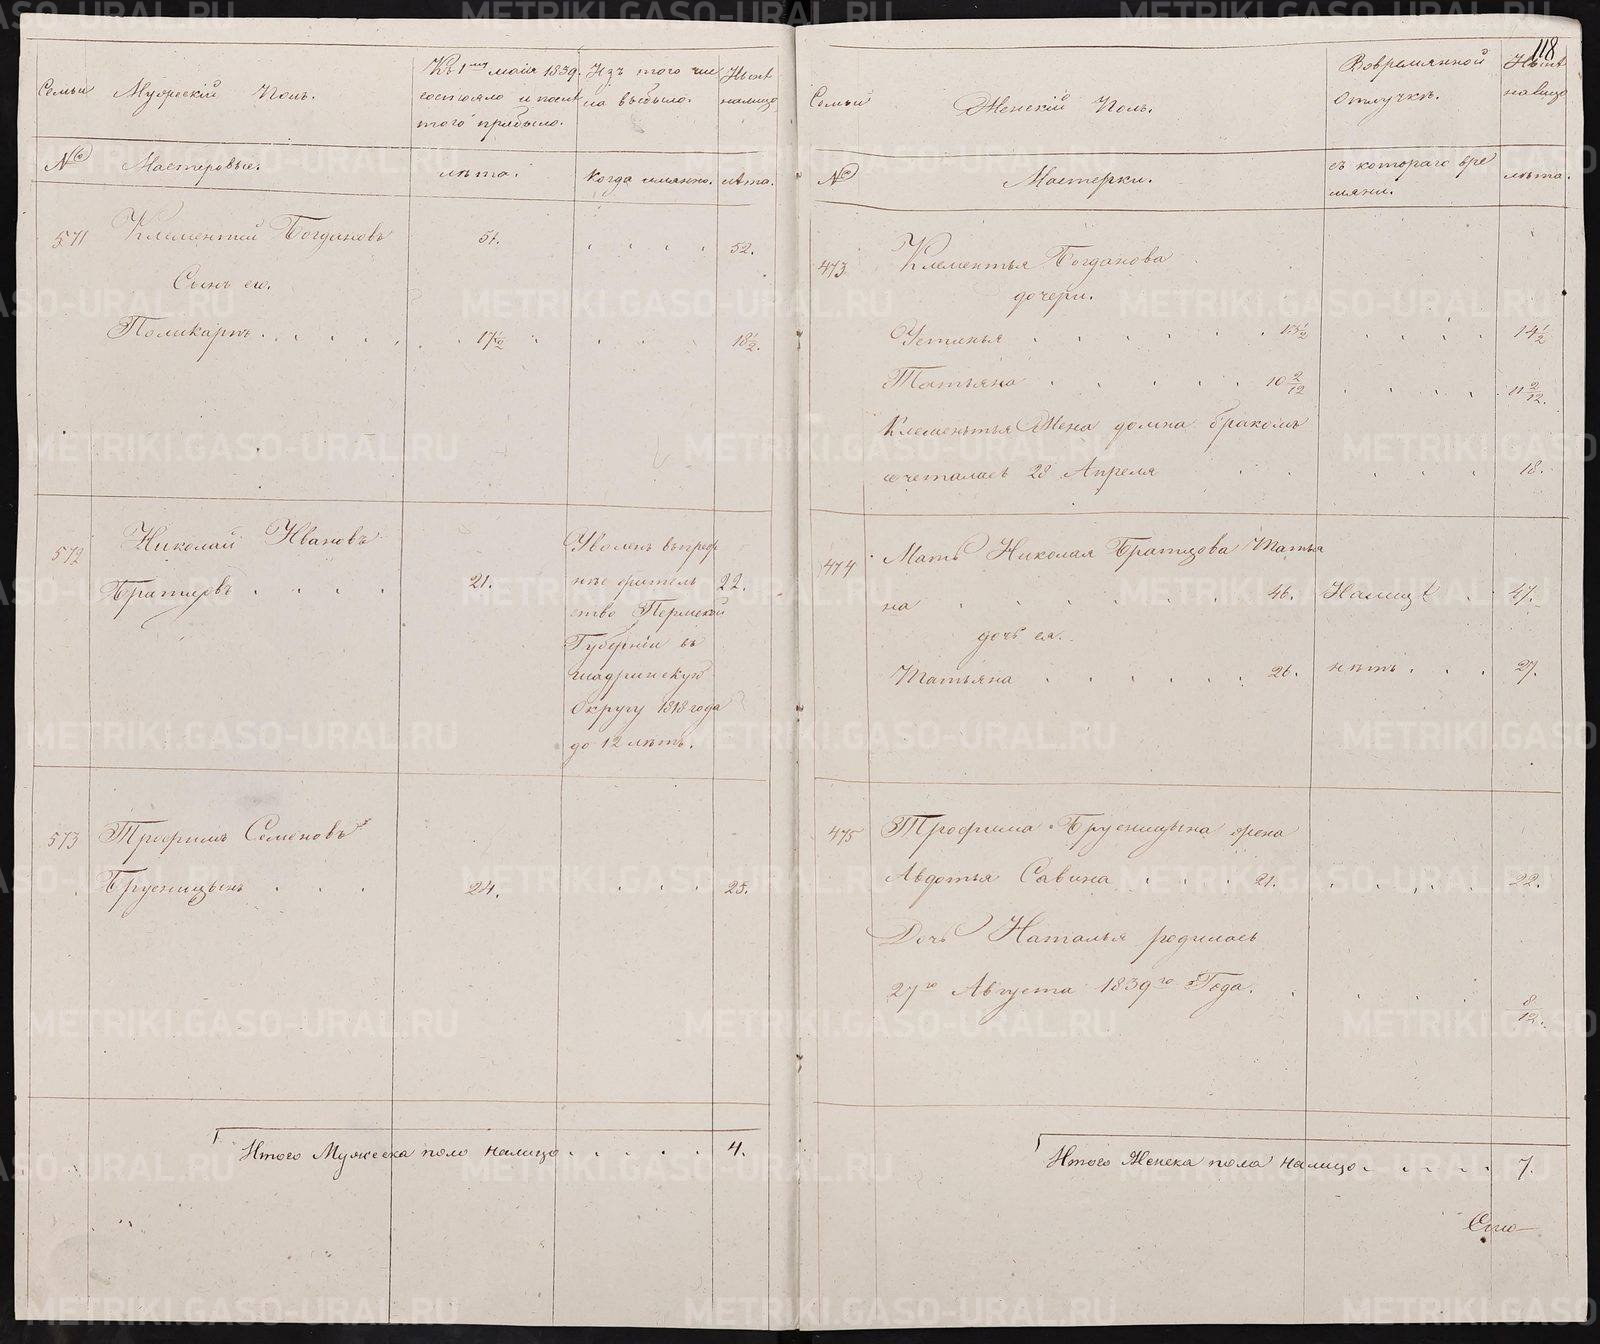 118
Семьи
Мужескій Полъ.
Къ 1му маія 1839.
состояло и послѣ
того прибыло.
Изъ того чис
ла выбыло.
Нынѣ
налицо
№
Мастеровые.
лѣта.
когда имянно.
лѣта.
571
Клементей Богдановъ
51.
52.
Сынъ ево.
Поликарпъ
17 1/2
18 1/2.
572
Николай Ивановъ
Братцовъ
21.
22.
573
Трофимъ Семеновъ
Брусницынъ
24.
25.
Итого Мужеска пола налицо
4.
Семьи
Женскій Полъ.
Вовремянной
Отлучкѣ.
Нынѣ
налицо
№
Мастерки.
съ котораго вре
мяни.
лѣта.
473
Клементья Богданова
дочери.
Устинья
13 1/2
14 1/2
Татьяна
10 2/12
11 2/12.
Клементья Жена домна бракомъ
сочеталась 28 Апреля
18.
474
Мать Николая Братцова Татья
на
46.
47.
дочь ея.
Татьяна
26.
нѣтъ
27.
475
Трофима Брусницына жена
Авдотья Савина
21.
22.
Дочь Наталья родилась
27го Августа 1839го Года.
8/12.
Итого Женска пола налицо
7.